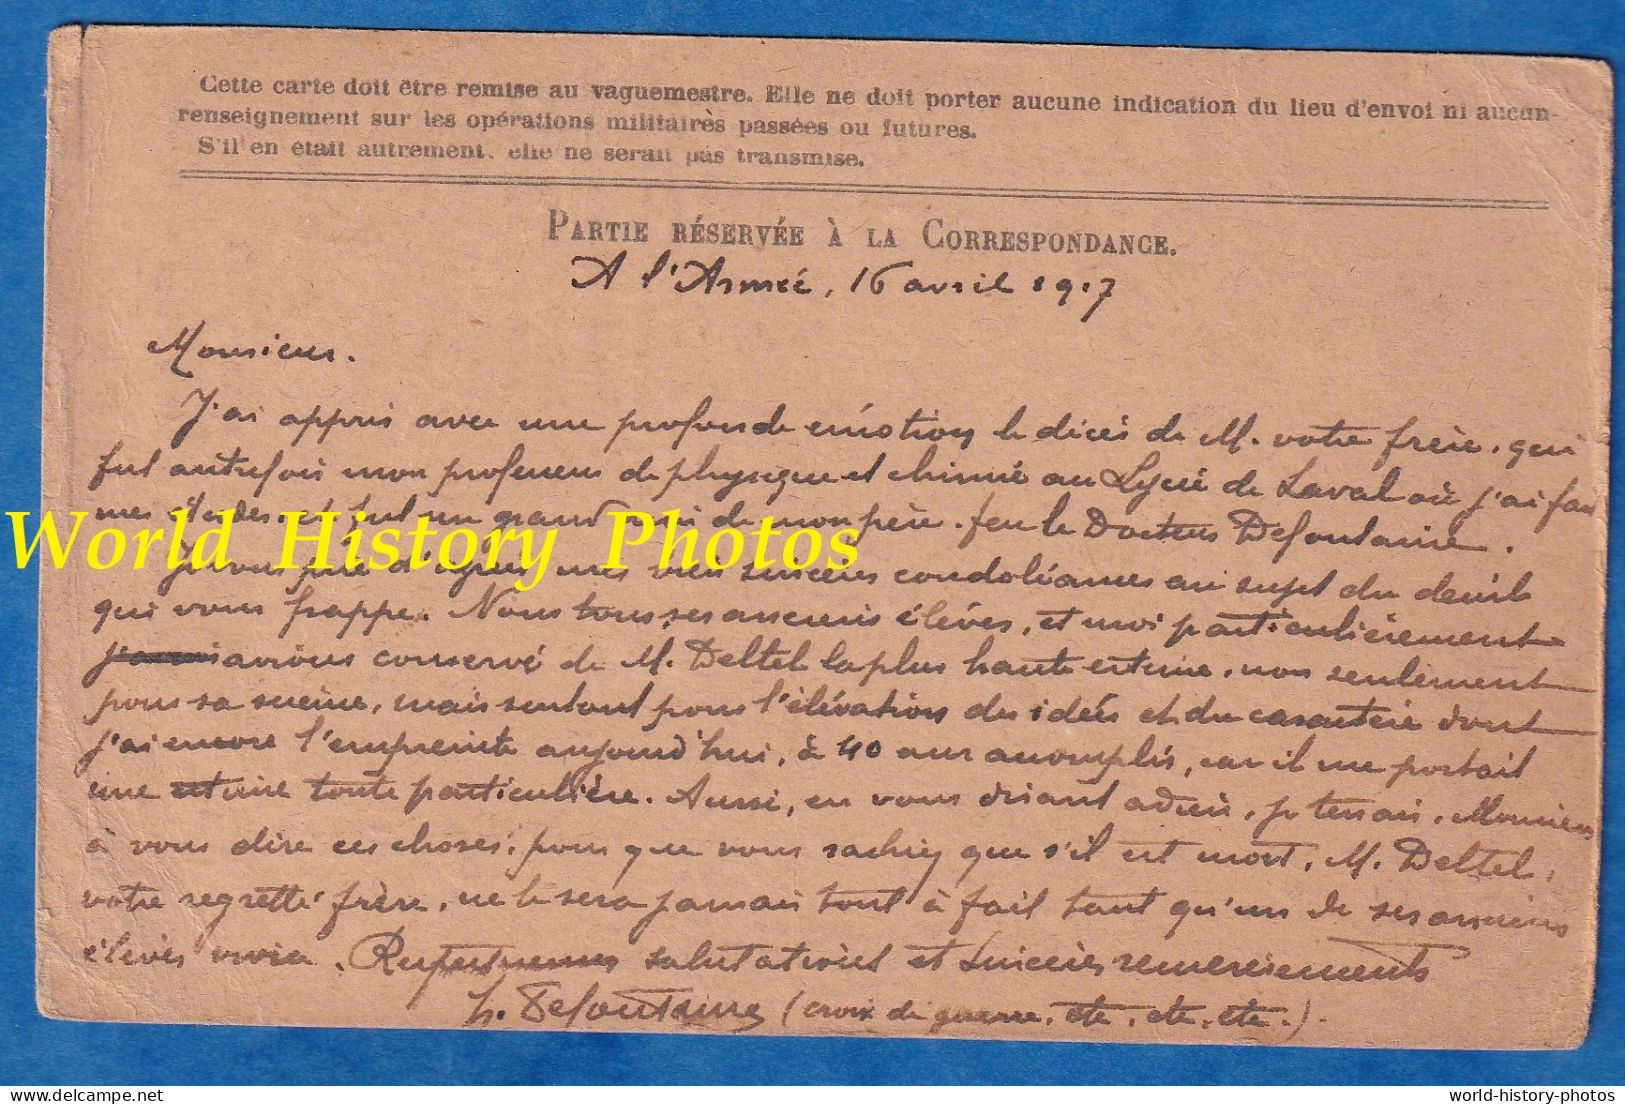 Cette carte doit être remise au vaguemestre. Elle ne doit porter aucune indication du lieu d'envoi ni aucun
renseignement sur les opérations militaires passées ou futures.
S'il en était autrement, elle ne serait pas transmise.
PARTIE RÉSERVÉE À LA CORRESPONDANCE.
A l'Armée, 16 avril 1917
Monsieur.
J'ai appris avec une profonde émotion le décès de M. votre frère, qui
fut autrefois mon professeur de physique et chimie au Lycée de Laval où j'ai fait
mes études, et fut un grand ami de mon père, feu le Docteur Defontaine.
World History Photos
Je vous prie d'agréer mes bien sincères condoléances au sujet du deuil
qui vous frappe. Nous tous, ses anciens élèves, et moi particulièrement
avions conservé de M. Deltel la plus haute estime, non seulement
pour sa science, mais surtout pour l'élévation des idées et du caractère dont
j'ai encore l'empreinte aujourd'hui, à 40 ans accomplis, car il me portait
une estime toute particulière. Aussi, en vous disant adieu, je tenais, Monsieur,
à vous dire ces choses, pour que vous sachiez que s'il est mort, M. Deltel,
votre regretté frère, ne le sera jamais tout à fait tant qu'un de ses anciens
élèves vivra. Respectueuses salutations et sincères remerciements
h. Defontaine (croix de guerre, etc, etc, etc.).
delcampe.net
world-history-photos